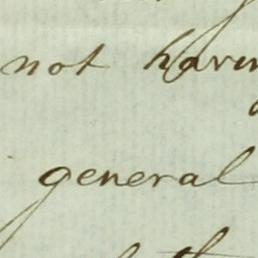 not havin
general